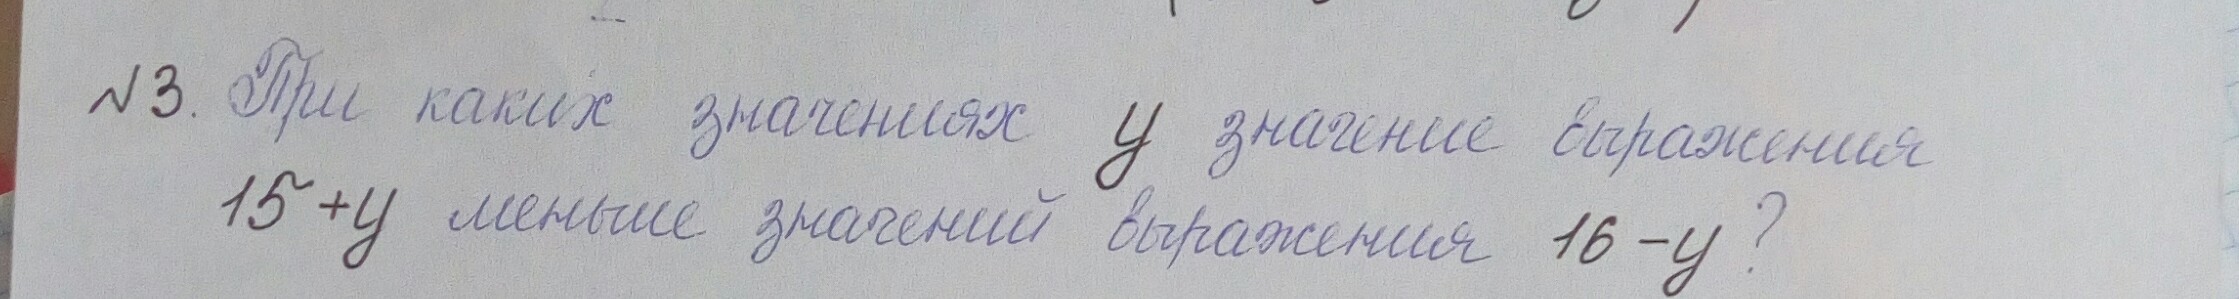 №3. При каких значениях y значение выражения
15+y меньше значений выражения 16-y?